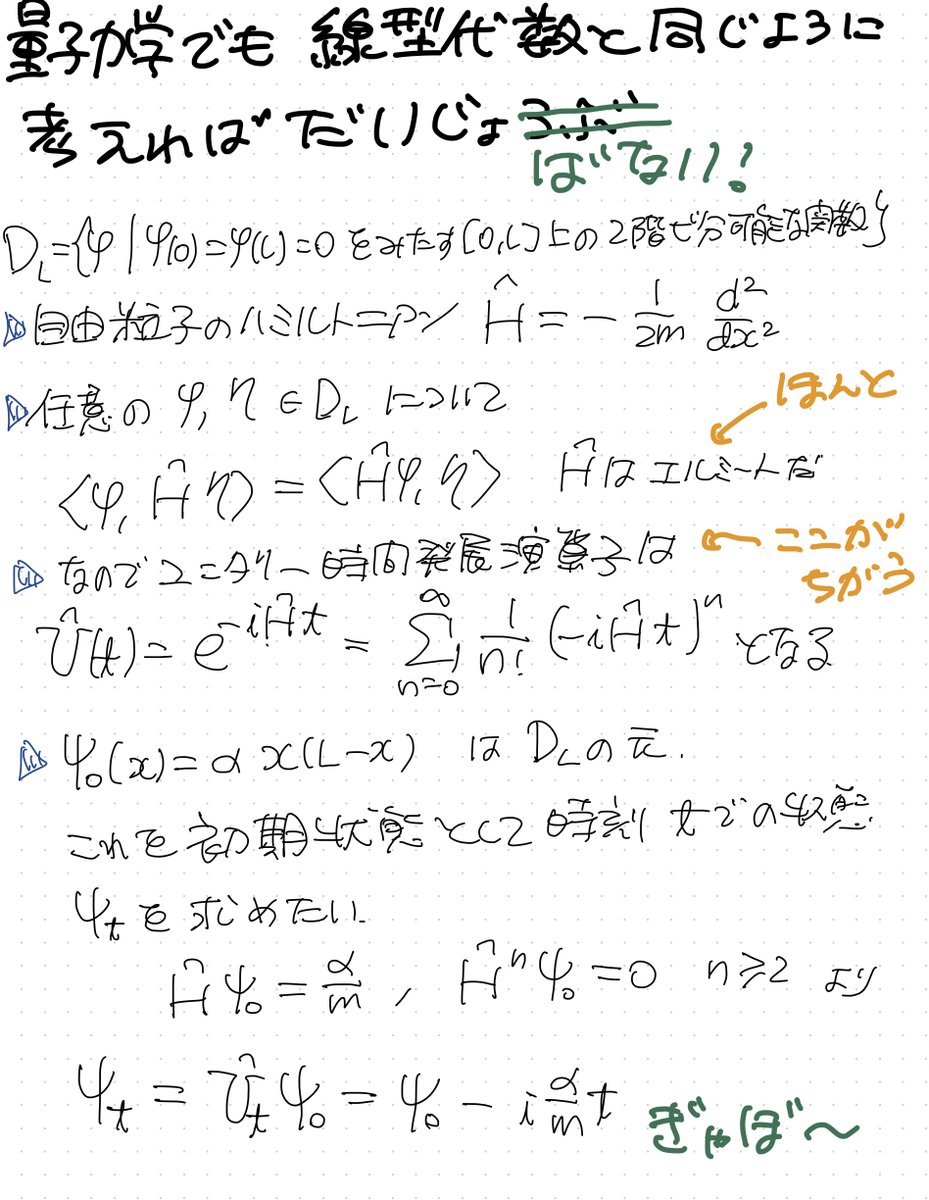 量子力学でも 線型代数と同じように
考えればだいじょうぶ
ばでない!
D_L={φ | φ(0)=φ(L)=0 をみたす[0,L]上の2階ビ分可能な関数}
自由粒子のハミルトニアン Ĥ = - 1/2m d²/dx²
任意の φ, η ∈ D_L について
ほんと
<φ, Ĥη> = <Ĥφ, η> Ĥはエルミートだ
なのでユニタリー時間発展演算子は
ここが
ちがう
Û(t) = e^{-iĤt} = Σ_{n=0}^{∞} 1/n! (-iĤt)^n となる
ψ₀(x) = α x(L-x) は D_Lの元.
これを初期状態として時刻tでの状態
ψ_tを求めたい.
Ĥψ₀ = α/m , Ĥ^n ψ₀ = 0 n≥2 より
ψ_t = Û_t ψ₀ = ψ₀ - i α/m t
ぎゃぼ〜